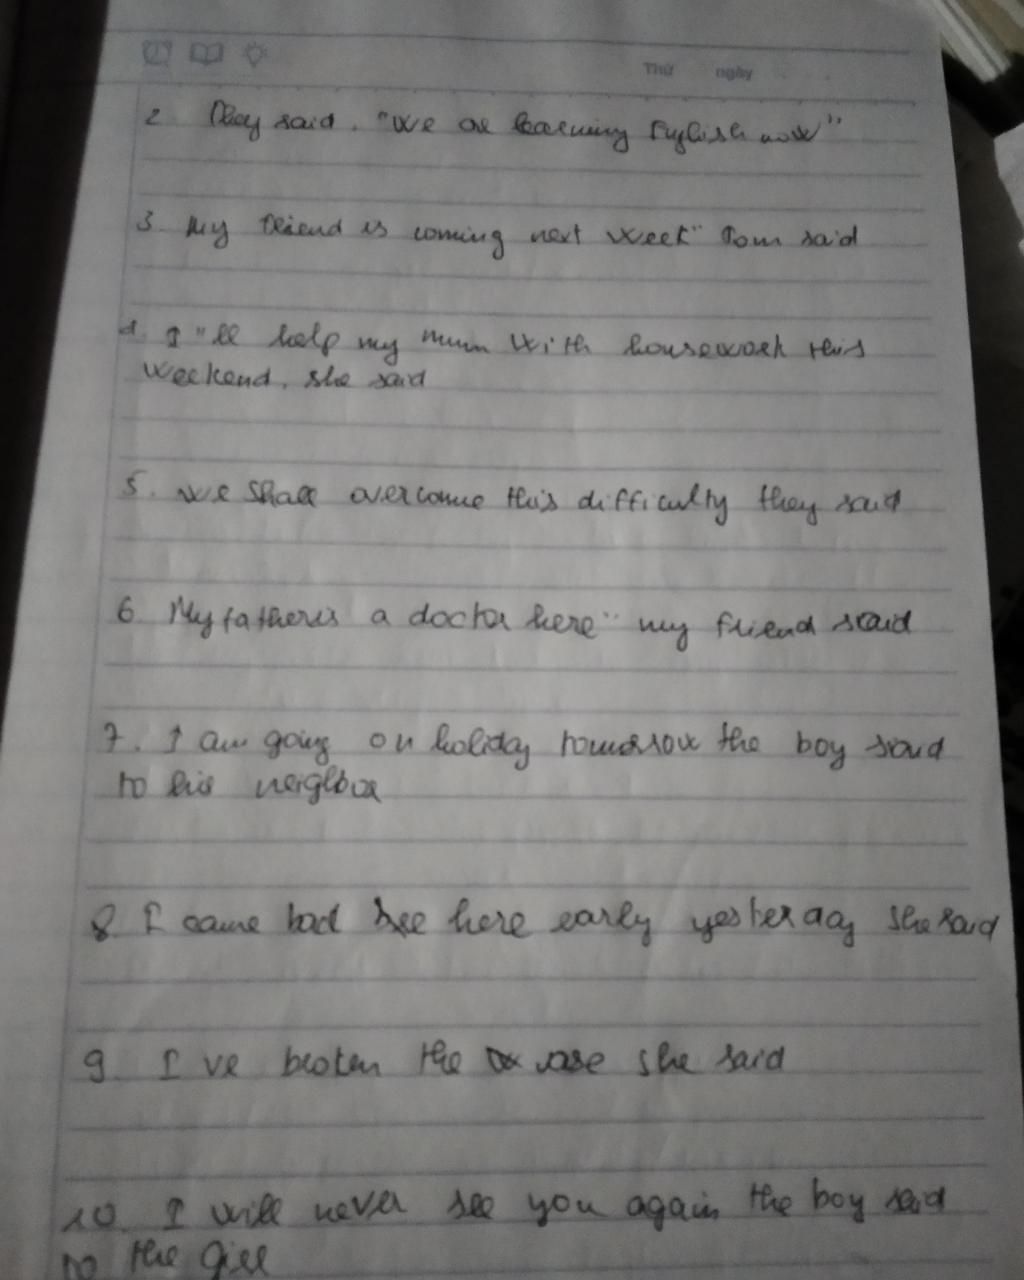 Thứ ngày
2 They said, "We are learning English now"
3. My friend is coming next week" Tom said
4. I "ll help my mum with housework this
weekend, she said
5. we shall overcome this difficulty they said
6 My father is a doctor here" my friend said
7. I am going on holiday tomorrow the boy said
to his neighbor
8. I came here early yesterday she said
9 I 've broken the vase she said
10. I will never see you again the boy said
to the girl